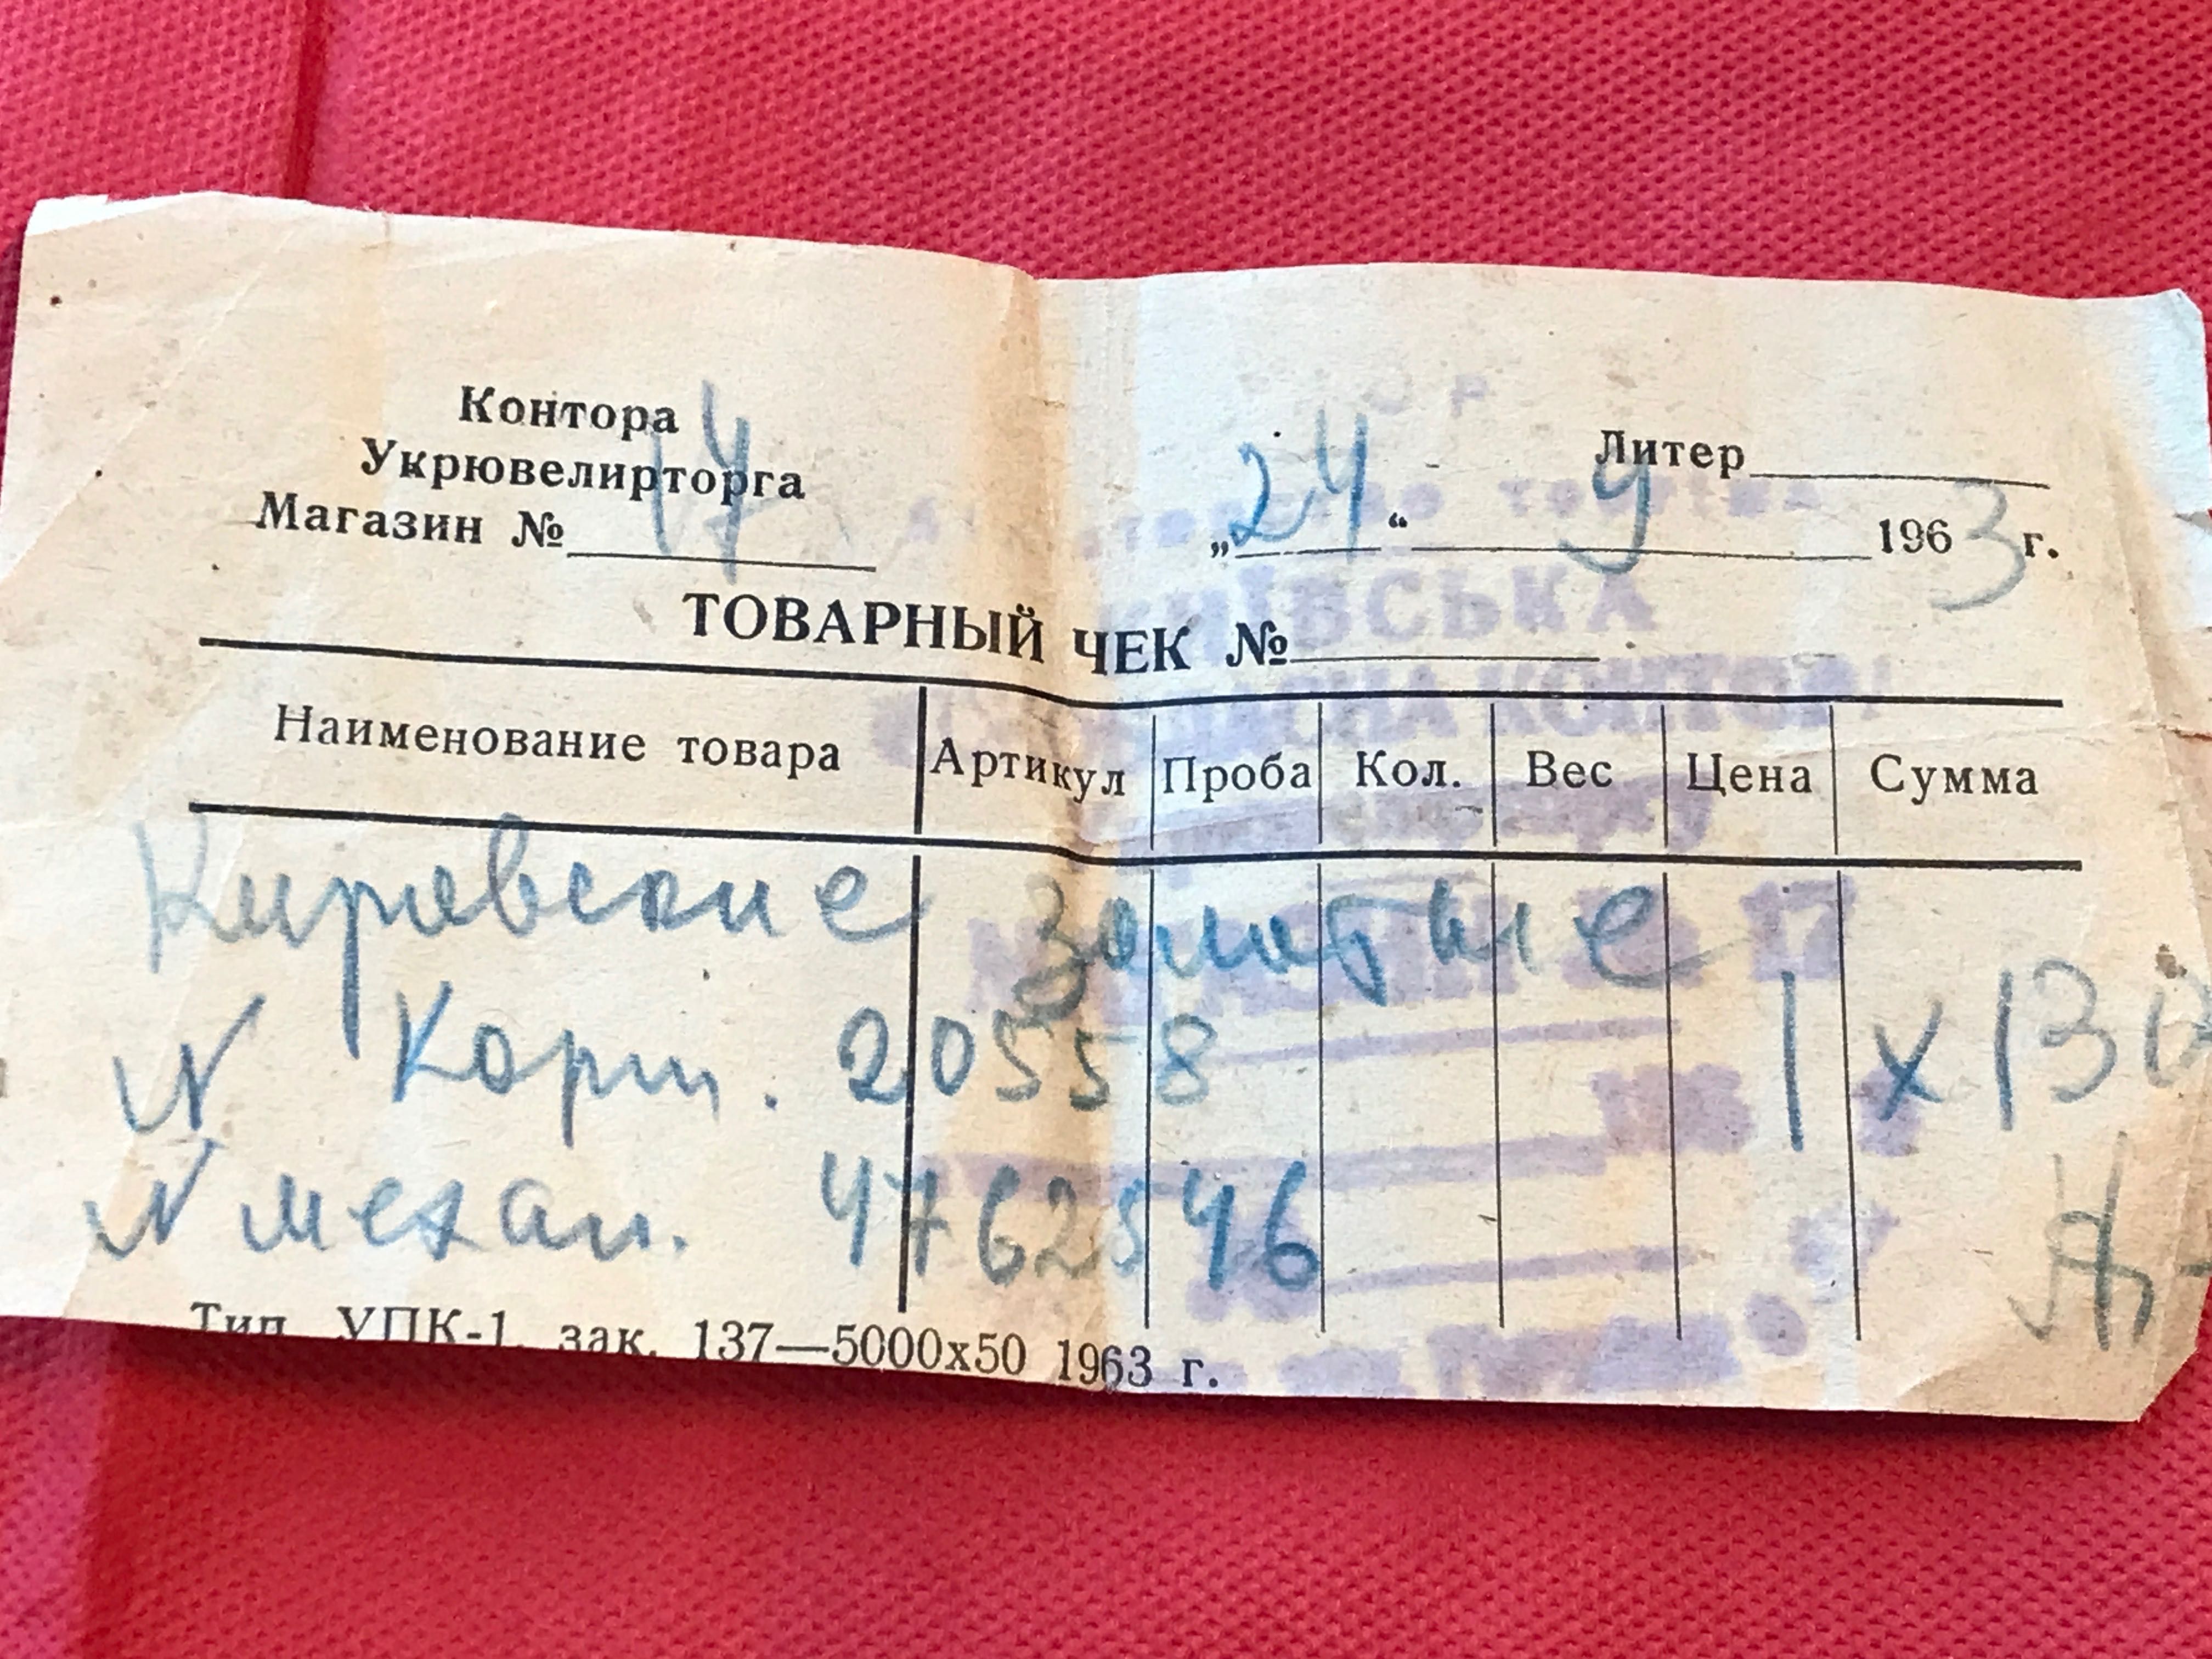 Контора
Укрювелирторга
Магазин № 17
Литер
„24“ 9 1963 г.
ТОВАРНЫЙ ЧЕК №
Наименование товара Артикул Проба Кол. Вес Цена Сумма
Кировские золотые
N Корп. 20558 1 x 130
N механ. 4762546
Тип. УПК-1. зак. 137—5000x50 1963 г.
КИЇВСЬКА
17